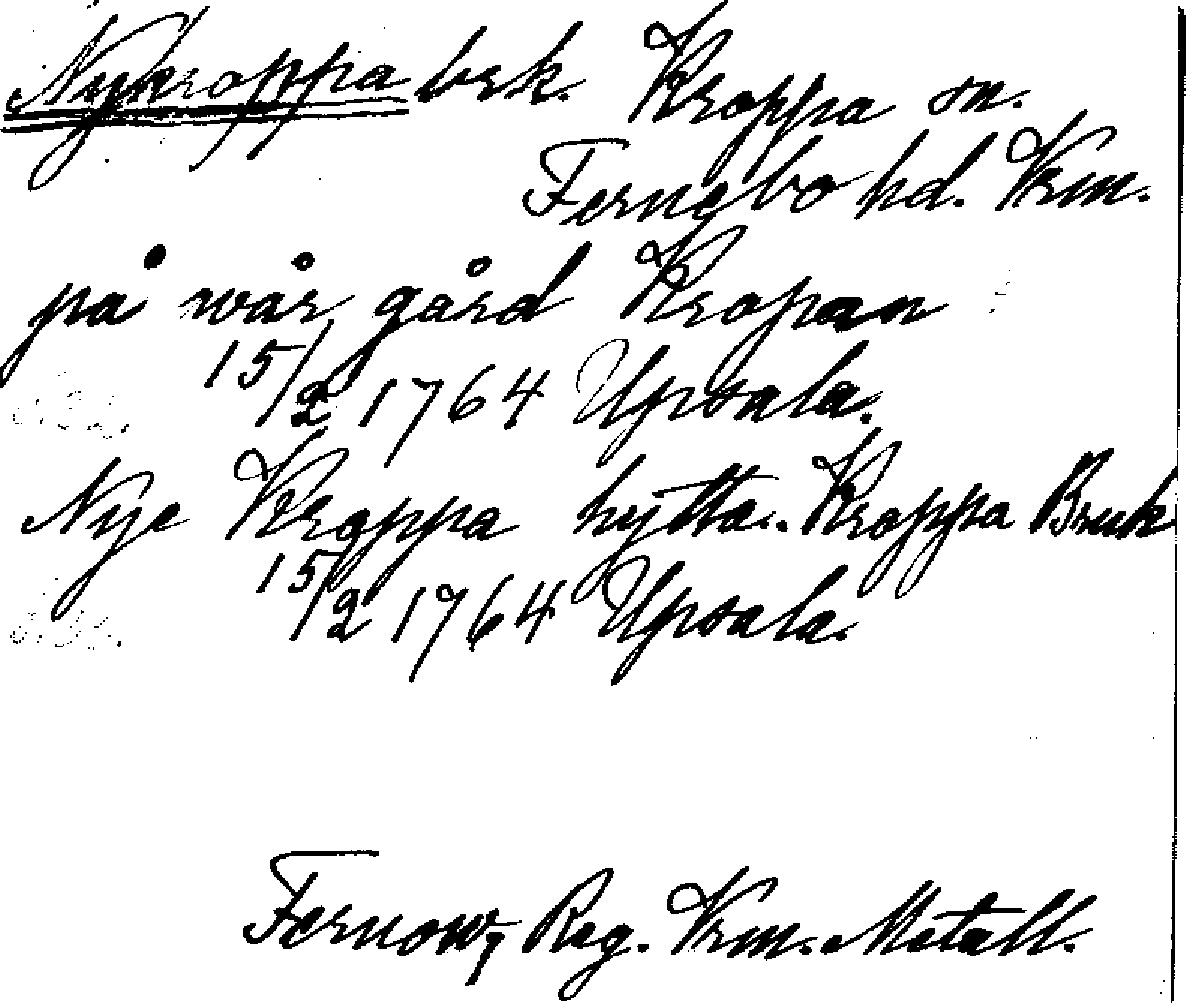 Nykroppa brk. Kroppa sn.
Fernebo hd. Vrm.
på wår gård Kropan
15/2 1764 Upsala.
Nye Kroppa hytta.. Kroppa Bruk
15/2 1764 Upsala.
Fernow, Reg. Vrm. Metall.